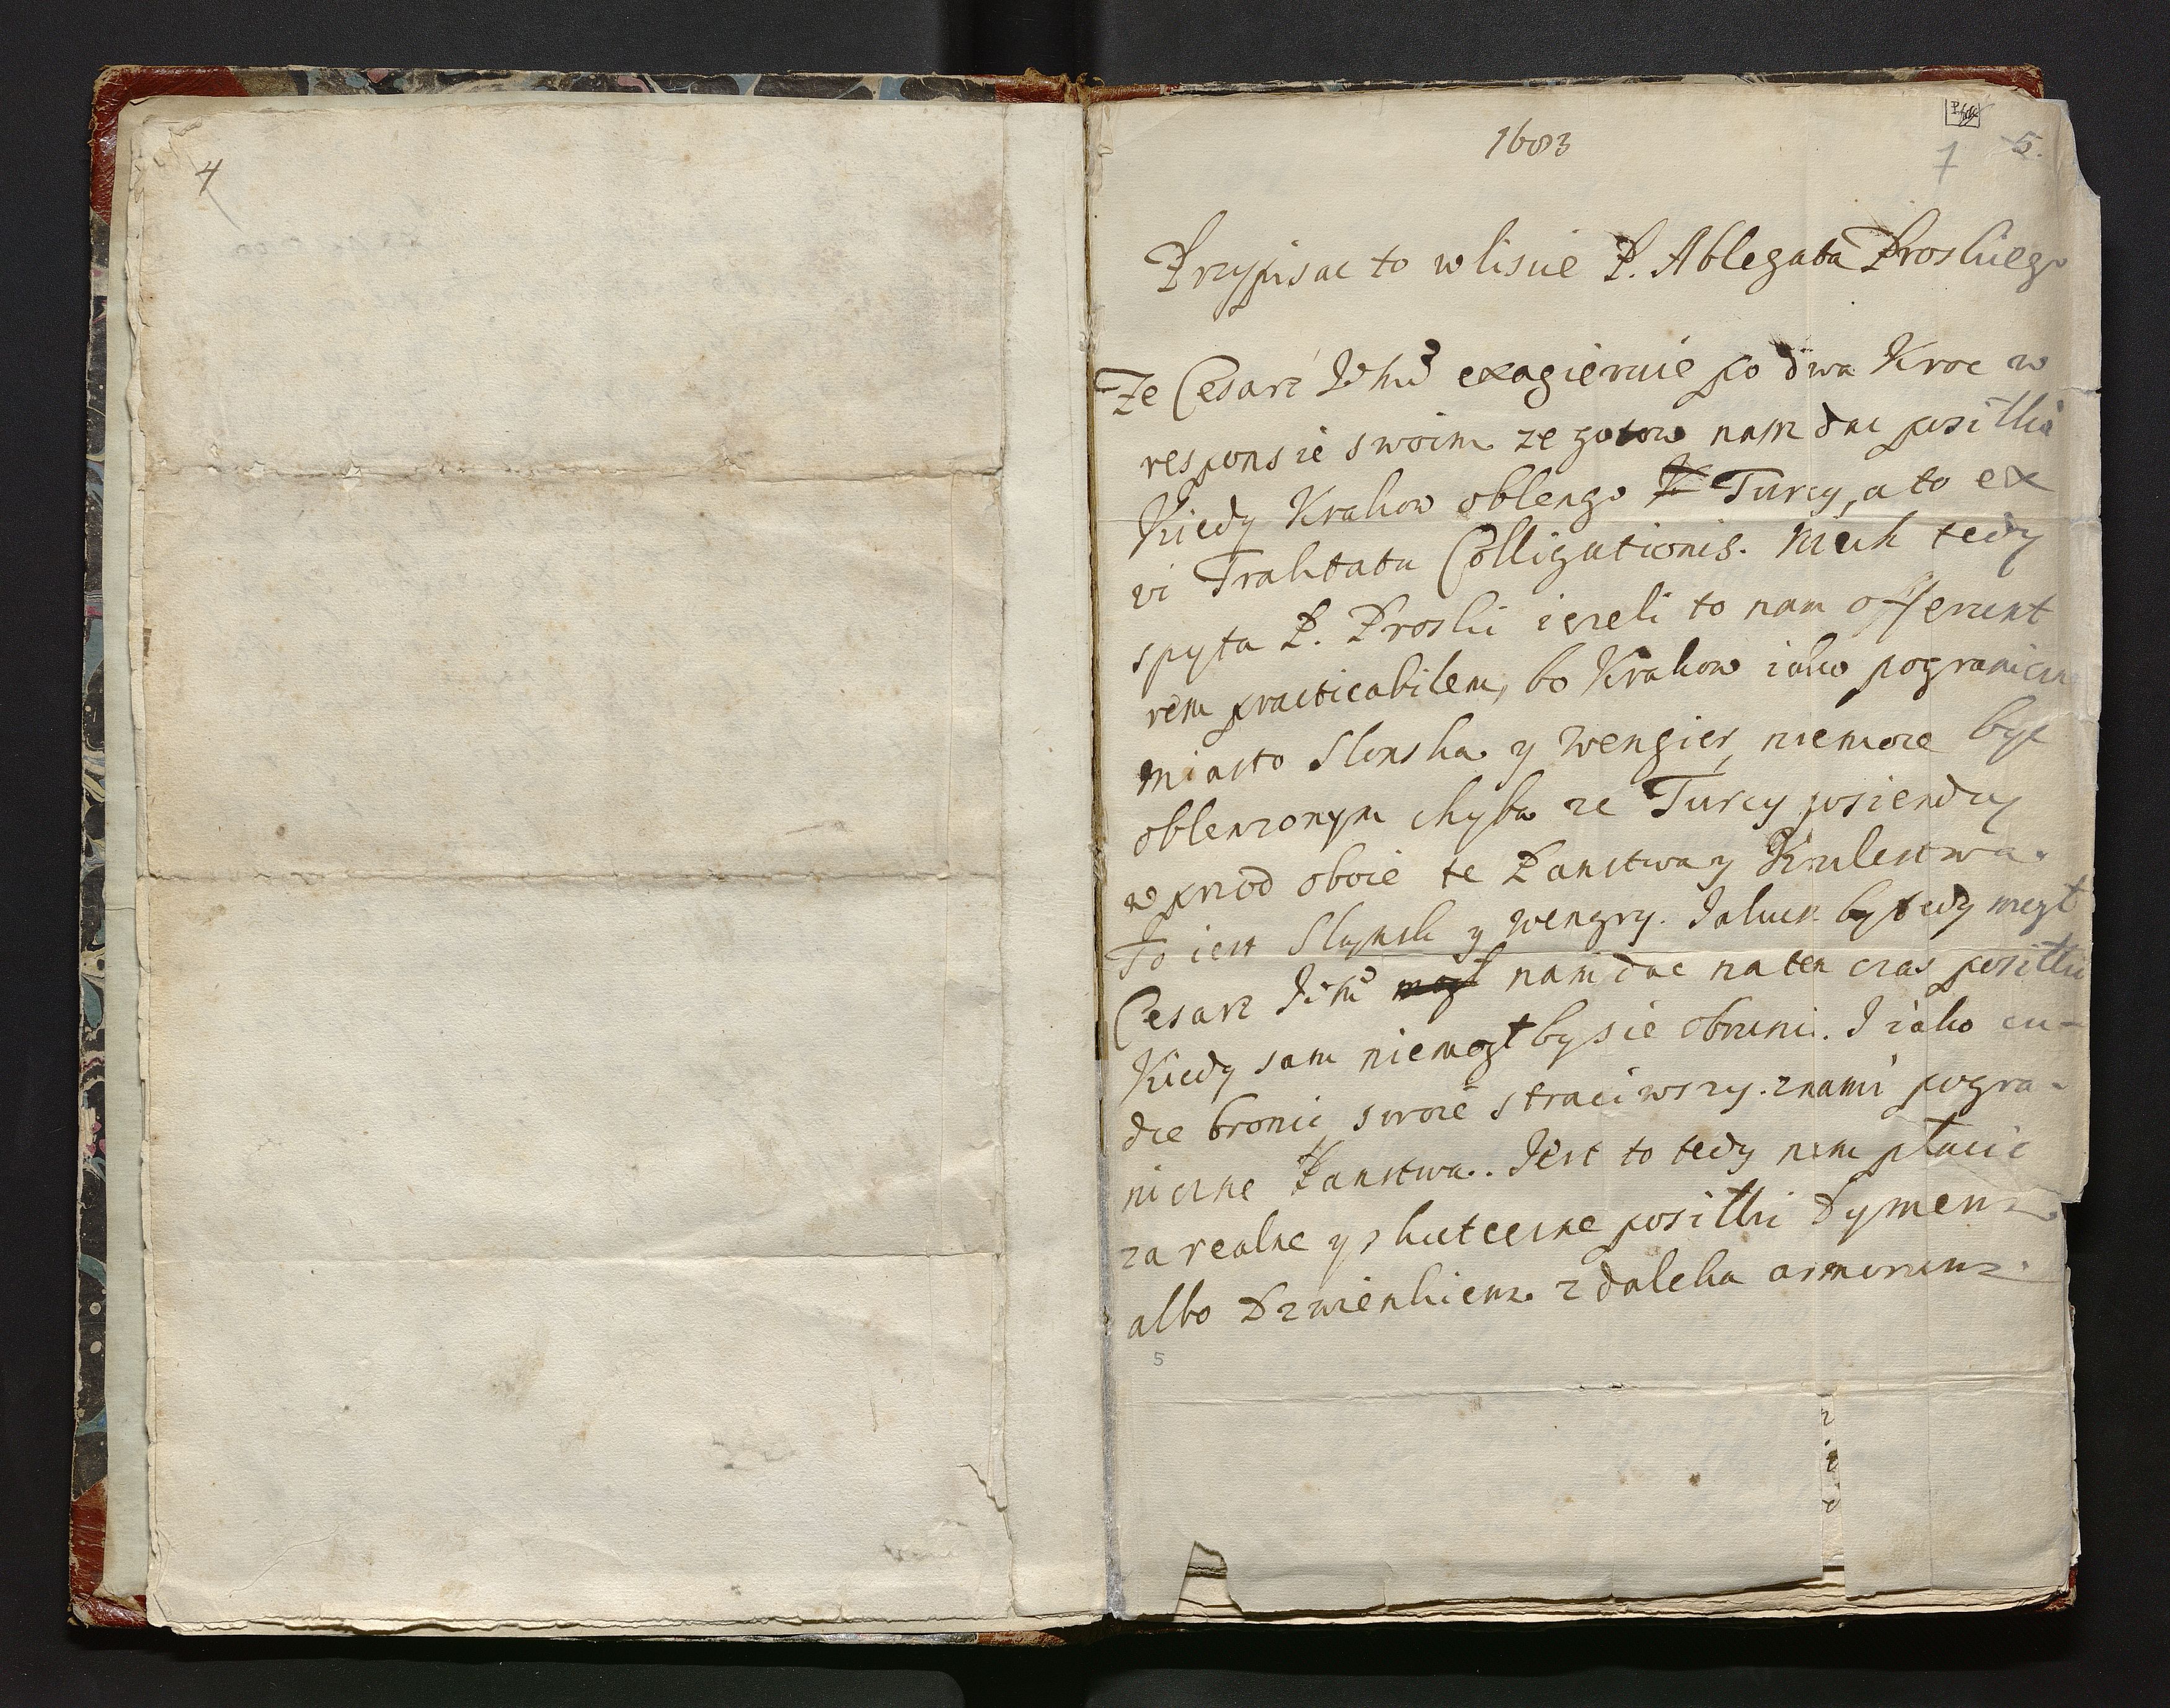 4
1683
7 5.
Przypisac to w liscie P. Ablegata Proskiego
Ze Cesarz Jehm exagieruie po dwa Kroc w
responsie swoim ze gotow nam dac posilki
Kiedy Krakow oblengo Turcy, a to ex
vi Traktatu Colligationis. Niech tedy
spyta P. Proski iezeli to nam offerunt
rem practicabilem, bo Krakow iako pograniczne
miasto Slonska y Wengier, niemoze byc
oblenzonym chyba ze Turcy posiendą
w przod oboie te Panstwa y Krulestwa.
To iest Slonsk y Wengry. Jakusz by tedy mogł
Cesarz Jehm nam dac na ten czas posiłki
Kiedy sam niemogł by sie obronic. I iako cu-
dze bronic swoie straciwszy. z nami pogra-
niczne Panstwa. Jest to tedy nam płacic
za realne y skuteczne posiłki Dymem
albo Dzwienkiem z daleka armurum.
5